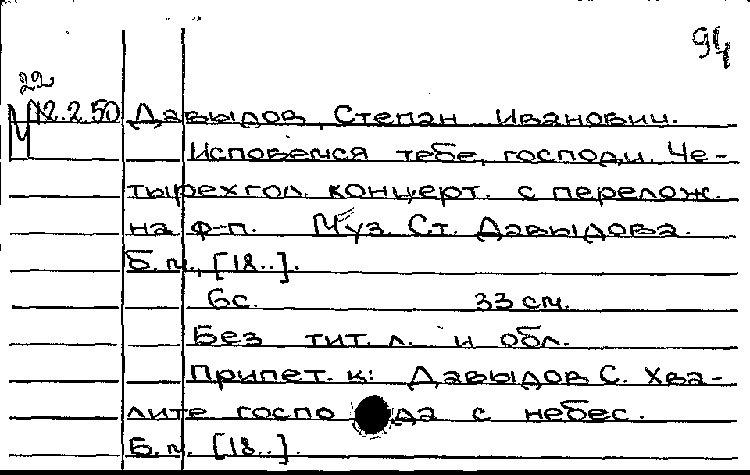 94
22
М 12.2.50 Давыдов, Степан Иванович.
Исповемся тебе, господи. Че-
тырехгол. концерт. с перелож.
на ф-п. Муз. Ст. Давыдова.
Б.м., [18..].
6с. 33 см.
Без тит. л. и обл.
Припет. к: Давыдов С. Хва-
лите госпо да с небес.
Б.м. [18..].